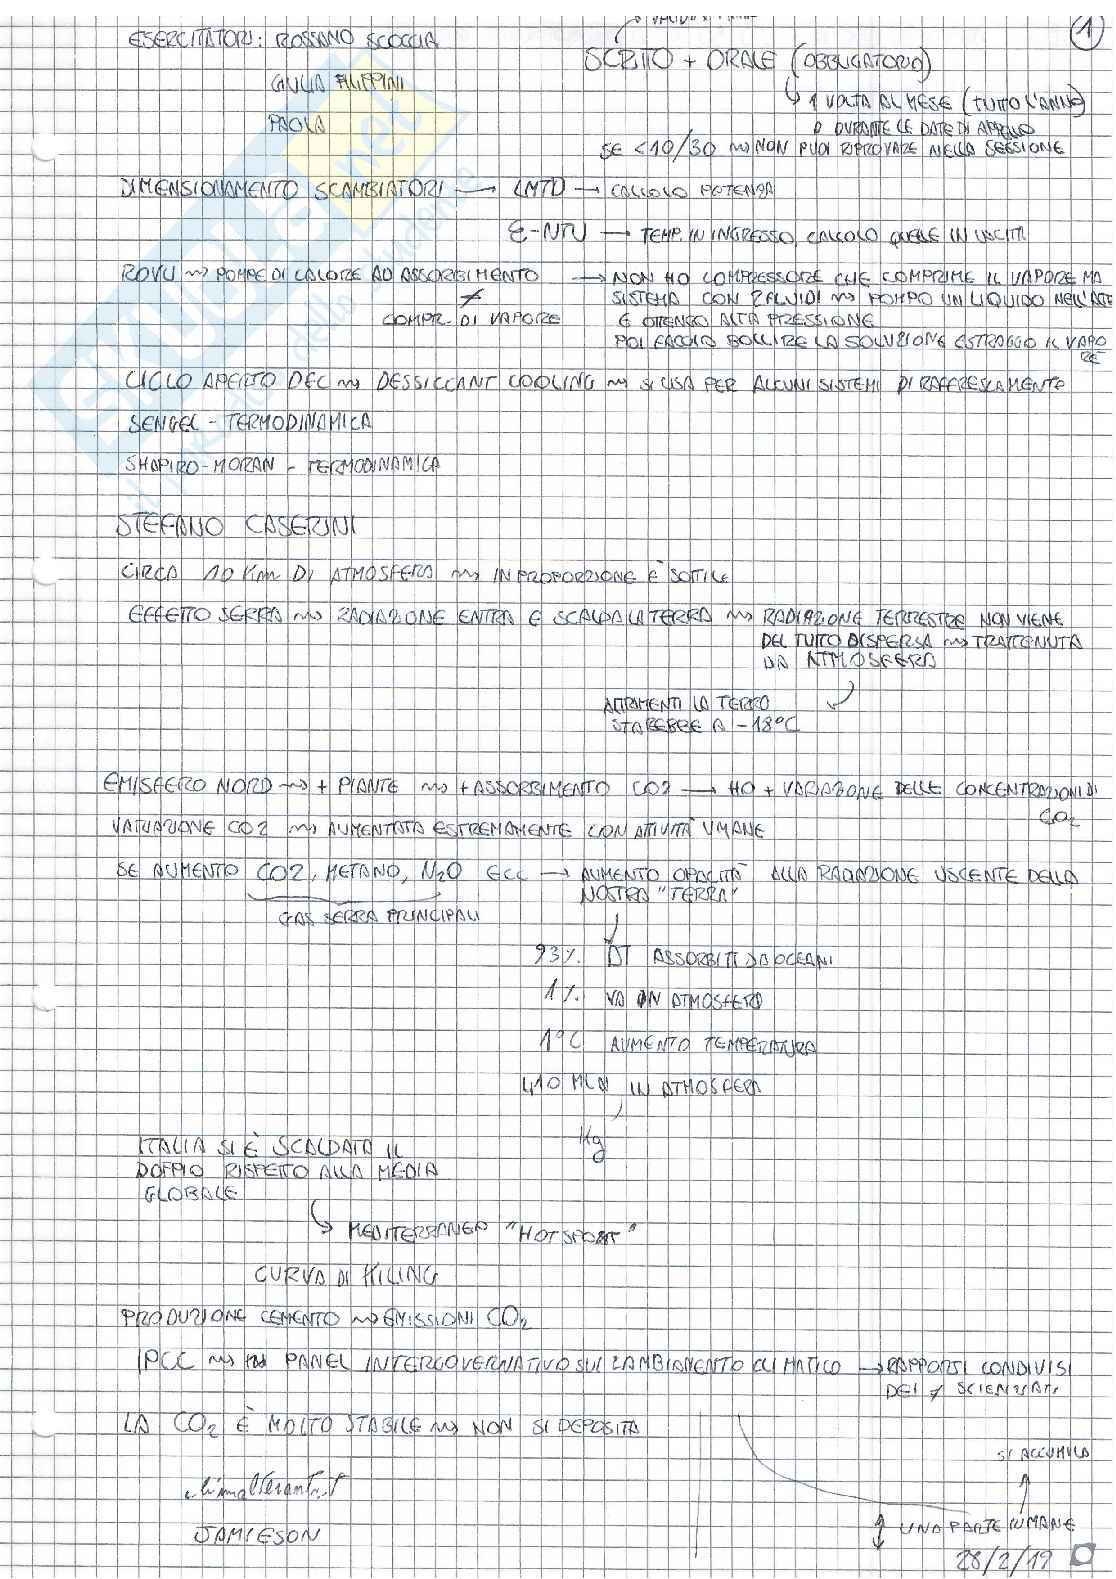 1
ESERCITATORI: ROSSANO SCOCCIA
SCRITTO + ORALE (OBBLIGATORIO)
GIULIA FILIPPINI
1 VOLTA AL MESE (TUTTO L'ANNO)
PAOLA
O DURANTE LE DATE DI APPELLO
SE <10/30 ⇝ NON PUOI RIPROVARE NELLA SESSIONE
DIMENSIONAMENTO SCAMBIATORI → LMTD → CALCOLO POTENZA
ε-NTU → TEMP. IN INGRESSO, CALCOLO QUELLE IN USCITA
⇝ POMPE DI CALORE AD ASSORBIMENTO → NON HO COMPRESSORE CHE COMPRIME IL VAPORE MA
≠
SISTEMA CON 2 FLUIDI ⇝ POMPO UN LIQUIDO
COMPR. DI VAPORE
E OTTENGO ALTA PRESSIONE
POI FACCIO BOLLIRE LA SOLUZIONE ESTRAGGO IL VAPO
RE
CICLO APERTO DEC ⇝ DESSICCANT COOLING ⇝ SI USA PER ALCUNI SISTEMI DI RAFFRESCAMENTO
SENGEL - TERMODINAMICA
SHAPIRO-MORAN - TERMODINAMICA
STEFANO CASERINI
CIRCA 10 Km DI ATMOSFERA ⇝ IN PROPORZIONE È SOTTILE
EFFETTO SERRA ⇝ RADIAZIONE ENTRA E SCALDA LA TERRA ⇝ RADIAZIONE TERRESTRE NON VIENE
DEL TUTTO DISPERSA ⇝ TRATTENUTA
DA ATMOSFERA
ALTRIMENTI LA TERRA
STAREBBE A -18°C
EMISFERO NORD ⇝ + PIANTE ⇝ + ASSORBIMENTO CO2 → HO + VARIAZIONE DELLE CONCENTRAZIONI DI
CO2
VATUAZIONE CO2 ⇝ AUMENTATA ESTREMAMENTE CON ATTIVITÀ UMANE
SE AUMENTO CO2, METANO, N2O ECC → AUMENTO OPACITÀ ALLA RADIAZIONE USCENTE DELLA
NOSTRA "TERRA"
GAS SERRA PRINCIPALI
93% DT ASSORBITI DA OCEANI
1% VA IN ATMOSFERA
1°C AUMENTO TEMPERATURA
410 MLN IN ATMOSFERA
Kg
ITALIA SI È SCALDATA IL
DOPPIO RISPETTO ALLA MEDIA
GLOBALE
MEDITERRANEO "HOT SPOT"
CURVA DI KILING
PRODUZIONE CEMENTO ⇝ EMISSIONI CO2
IPCC ⇝ PANEL INTERGOVERNATIVO SUL CAMBIAMENTO CLIMATICO → RAPPORTI CONDIVISI
DEI ≠ SCIENZIATI
LA CO2 È MOLTO STABILE ⇝ NON SI DEPOSITA
SI ACCUMULA
climalteranti.it
JAMIESON
UNA PARTE RIMANE
28/2/19